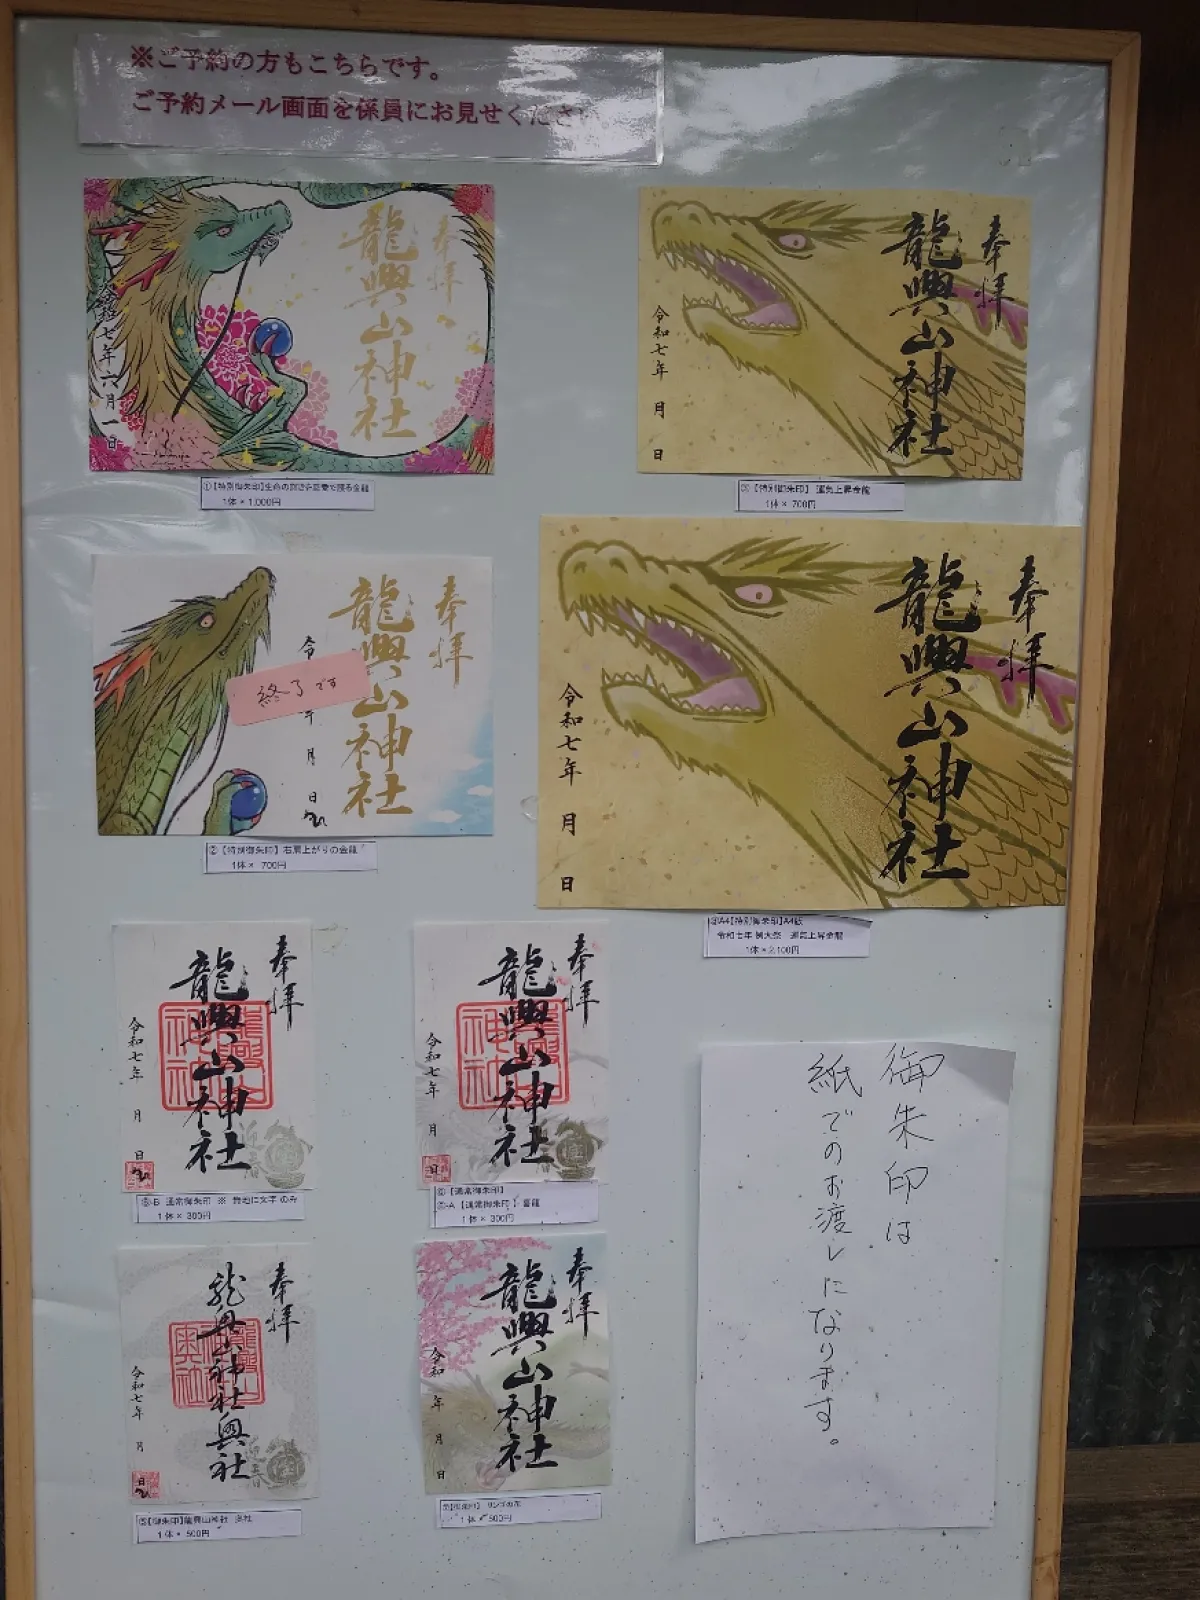 ※ご予約の方もこちらです。
ご予約メール画面を係員にお見せくださ
奉拝
龍興山神社
令和七年六月一日
①【特別御朱印】生命の
1体×1,000円
奉拝
龍興山神社
令和七年 月 日
③【特別御朱印】 運気上昇金龍
1体×700円
奉拝
龍興山神社
令 年 月 日
終了です
②【特別御朱印】右肩上がりの金龍
1体× 700円
奉拝
龍興山神社
令和七年 月 日
③A4【特別御朱印】A4版
令和七年 例大祭 運気上昇金龍
1体×2,100円
奉拝
龍興山神社
令和七年 月 日
-B 通常御朱印 ※ 無地に文字のみ
1体× 300円
奉拝
龍興山神社
令和七年 月 日
【通常御朱印】
-A【通常御朱印】
1体× 300円
奉拝
龍興山神社奥社
令和七年 月 日
⑤【御朱印】龍興山神社 奥社
1体× 500円
奉拝
龍興山神社
令和 年 月 日
【御朱印】 リンゴの花
1体 500円
御朱印は
紙でのお渡しになります。